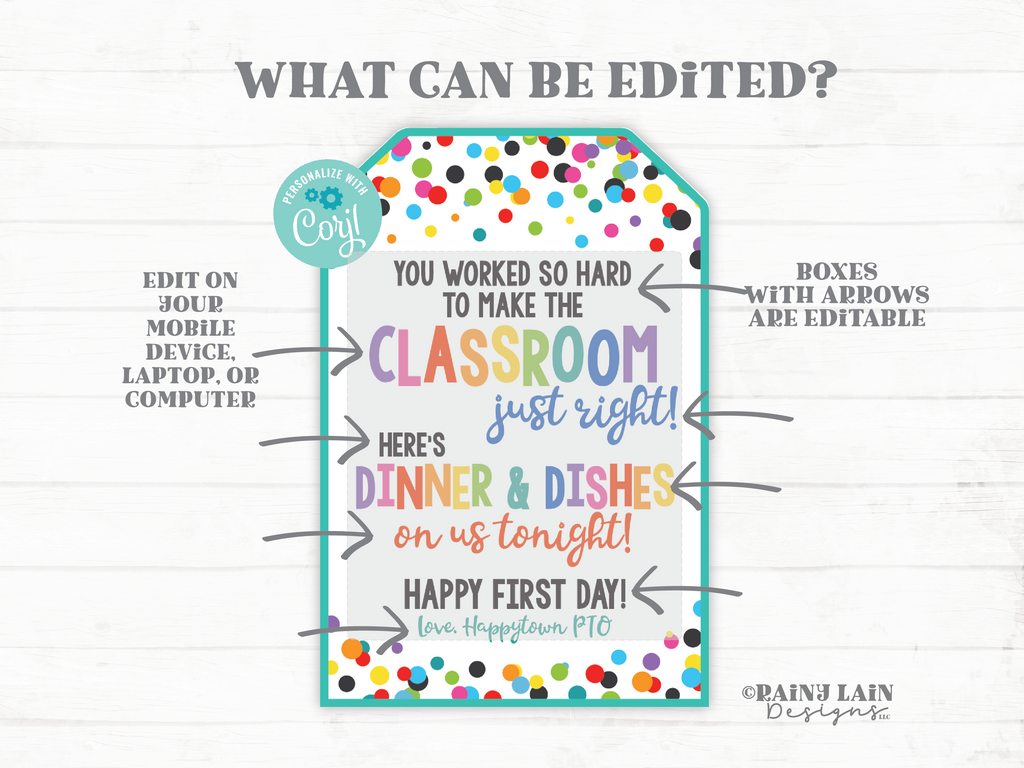 WHAT CAN BE EDITED?
PERSONALIZE WITH
Corjl
EDIT ON
YOUR
MOBILE
DEVICE,
LAPTOP, OR
COMPUTER
BOXES
WITH ARROWS
ARE EDITABLE
YOU WORKED SO HARD
TO MAKE THE
CLASSROOM
just right!
HERE'S
DINNER & DISHES
on us tonight!
HAPPY FIRST DAY!
Love, Happytown PTO
©RAINY LAIN
Designs LLC